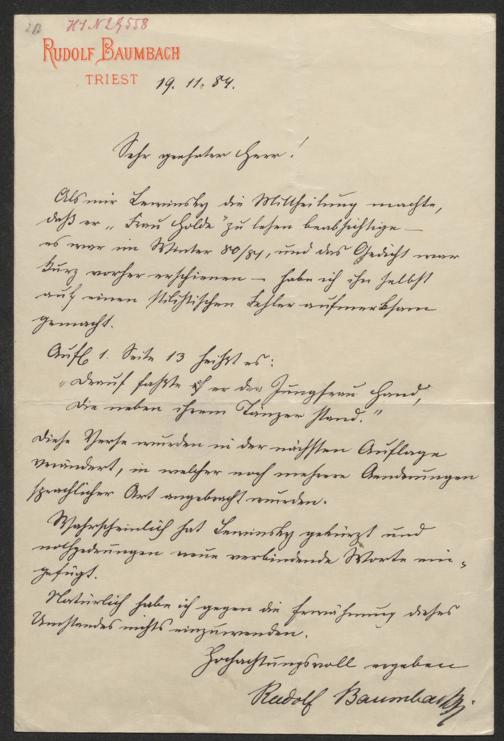 H.I.N. 29558
RUDOLF BAUMBACH
TRIEST
19. 11. 84.
Sehr geehrter Herr!
Als mir Lewinsky die Mittheilung machte,
daß er „Frau Holde" zu lesen beabsichtige —
es war im Winter 80/81, und das Gedicht war
kurz vorher erschienen — habe ich ihn selbst
auf einen stilistischen Fehler aufmerksam
gemacht.
Aufl. 1. Seite 13 heißt es:
„Drauf faßte er der Jungfrau Hand,
Die neben ihrem Tänzer stand."
Diese Verse wurden in der nächsten Auflage
verändert, in welcher noch mehrere Aenderungen
sprachlicher Art angebracht wurden.
Wahrscheinlich hat Lewinsky gekürzt und
nothgedrungen neue verbindende Worte ein-
gefügt.
Natürlich habe ich gegen die Erwähnung dieses
Umstandes nichts einzuwenden.
Hochachtungsvoll ergeben
Rudolf Baumbach